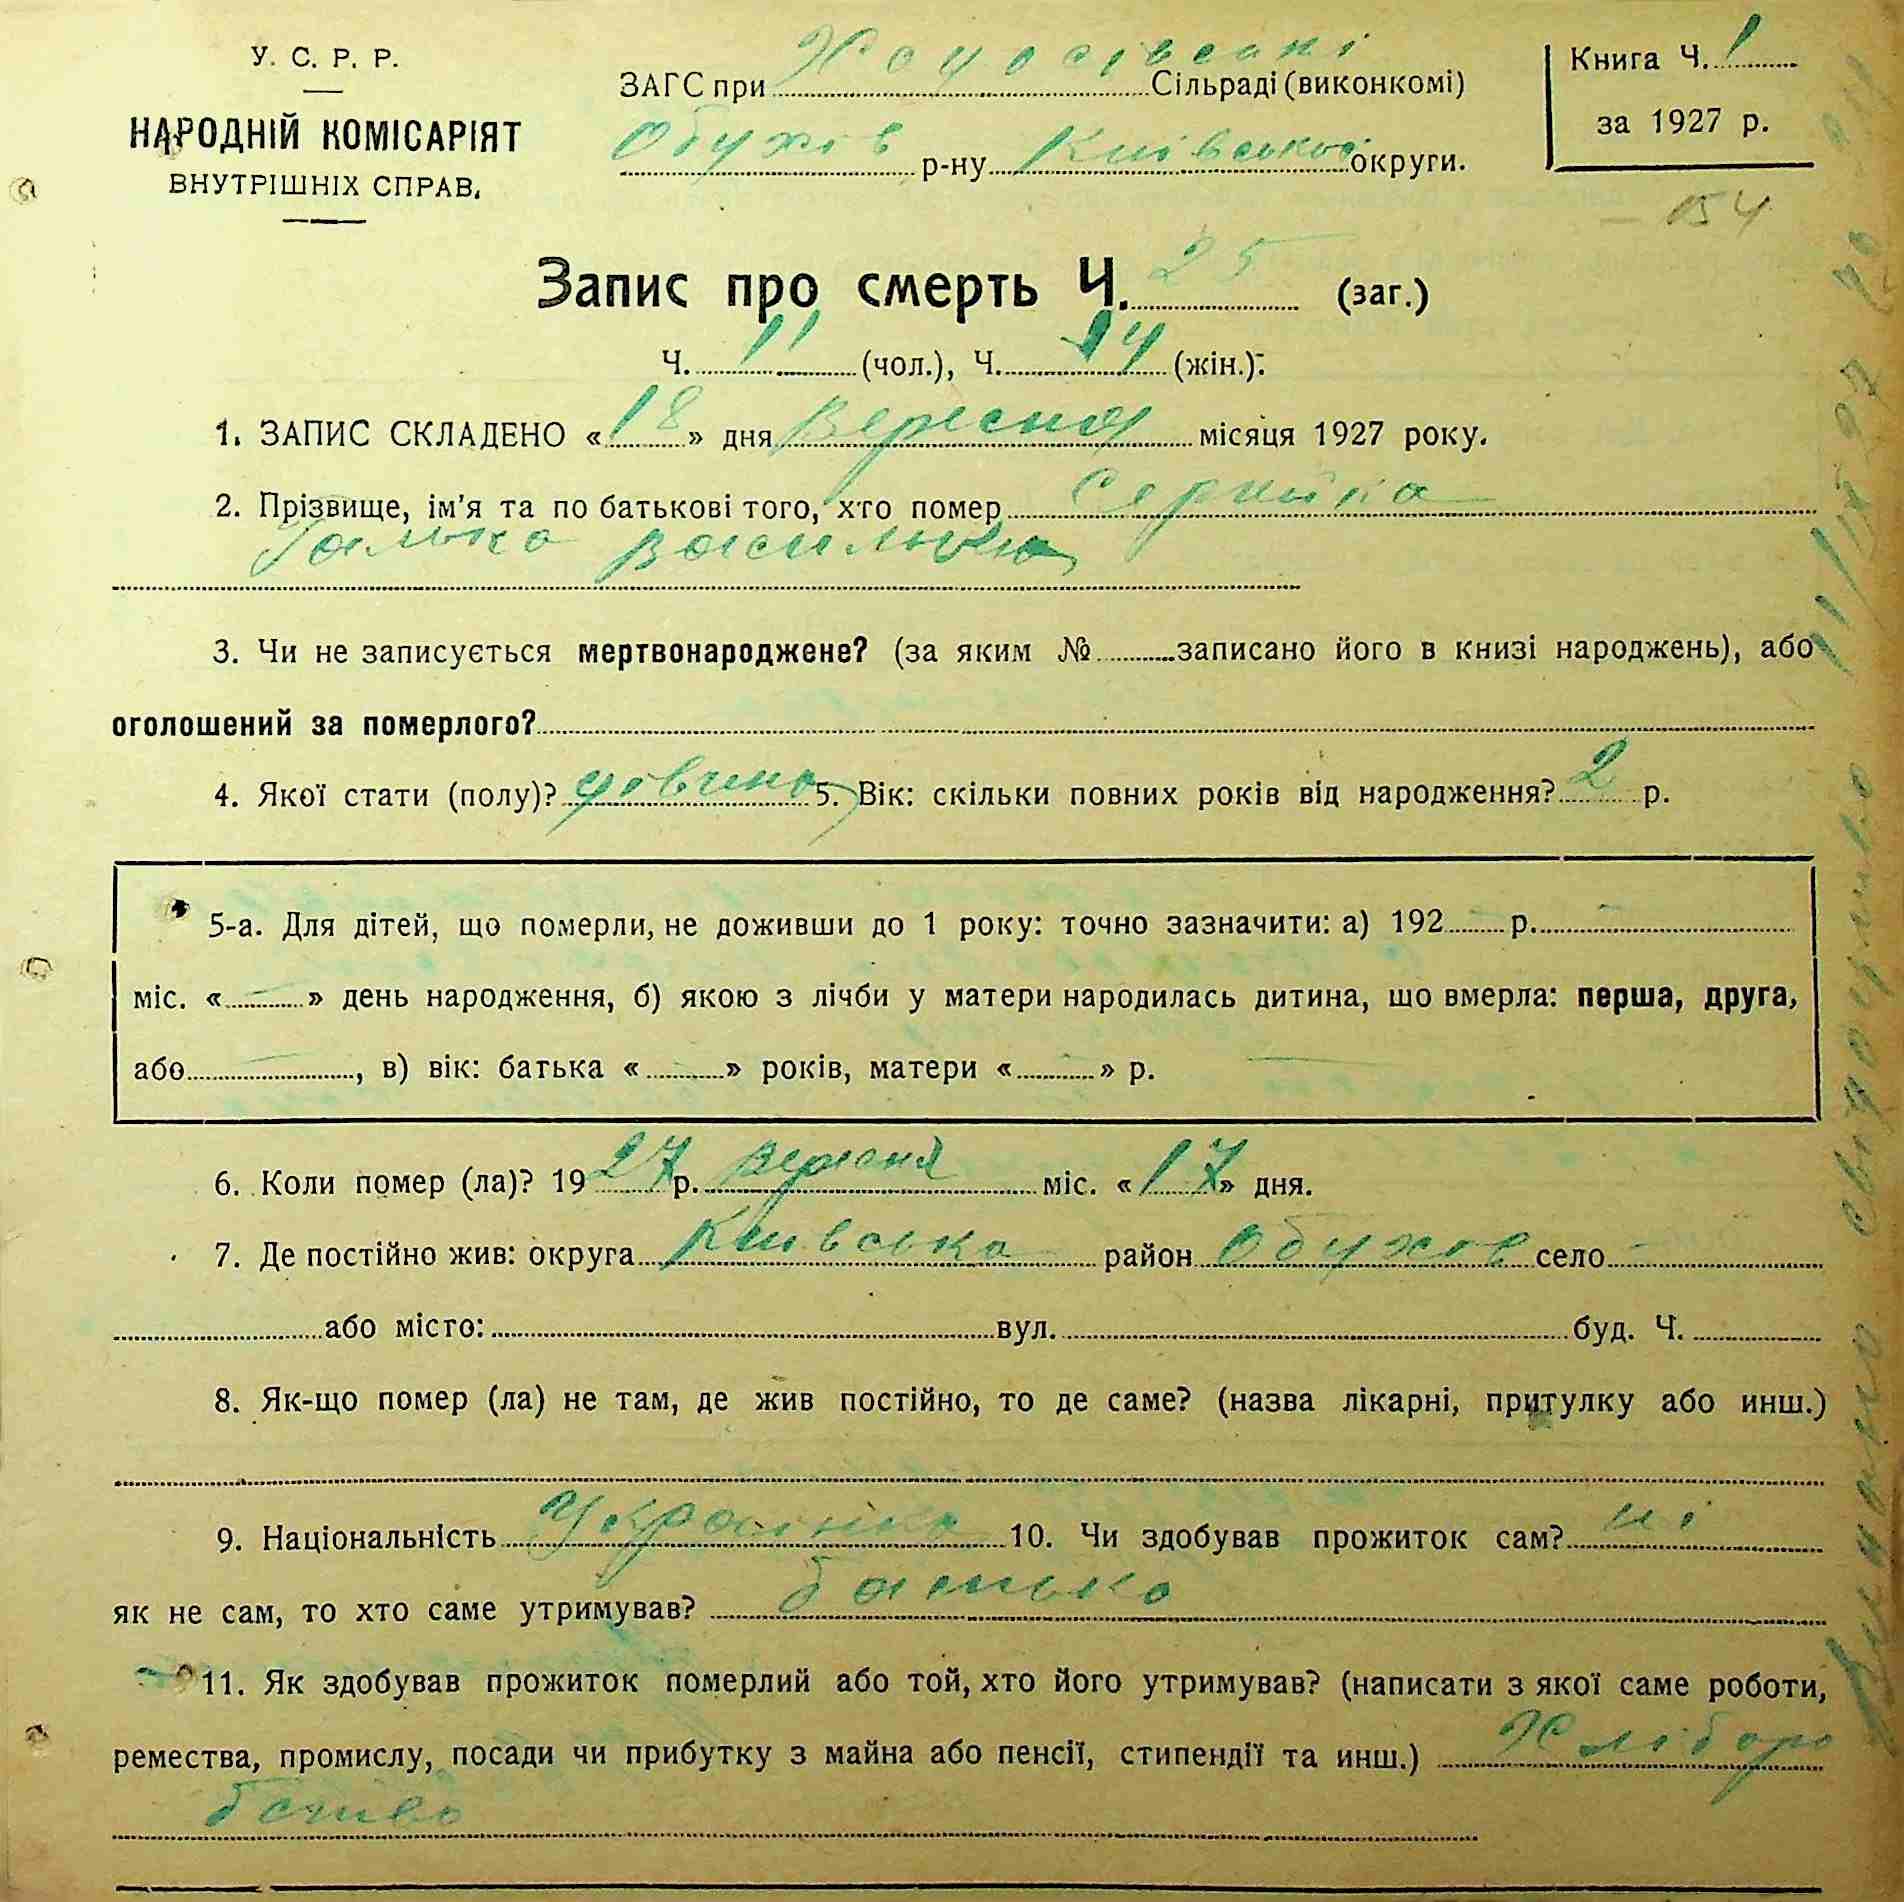 У. С. Р. Р.
НАРОДНІЙ КОМІСАРІЯТ
ВНУТРІШНІХ СПРАВ.
ЗАГС при Сільраді (виконкомі)
Обухов р-ну Київської округи.
Книга Ч. 1
за 1927 р.
154
Запис про смерть Ч. 25 (заг.)
Ч. 11 (чол.), Ч. 14 (жін.).
1. ЗАПИС СКЛАДЕНО «18» дня Вересня місяця 1927 року.
2. Прізвище, ім'я та по батькові того, хто помер
Галька
3. Чи не записується мертвонароджене? (за яким № записано його в книзі народжень), або
оголошений за померлого?
4. Якої стати (полу)? 5. Вік: скільки повних років від народження? 2 р.
5-а. Для дітей, що померли, не доживши до 1 року: точно зазначити: а) 192 р.
міс. « » день народження, б) якою з лічби у матери народилась дитина, що вмерла: перша, друга,
або , в) вік: батька « » років, матери « » р.
6. Коли помер (ла)? 1927 р. Вересня міс. «17» дня.
7. Де постійно жив: округа Київська район Обухов село
або місто: вул. буд. Ч.
8. Як-що помер (ла) не там, де жив постійно, то де саме? (назва лікарні, притулку або инш.)
9. Національність Українка 10. Чи здобував прожиток сам? ні
як не сам, то хто саме утримував? батько
11. Як здобував прожиток померлий або той, хто його утримував? (написати з якої саме роботи,
ремества, промислу, посади чи прибутку з майна або пенсії, стипендії та инш.) Хлібороб
бство